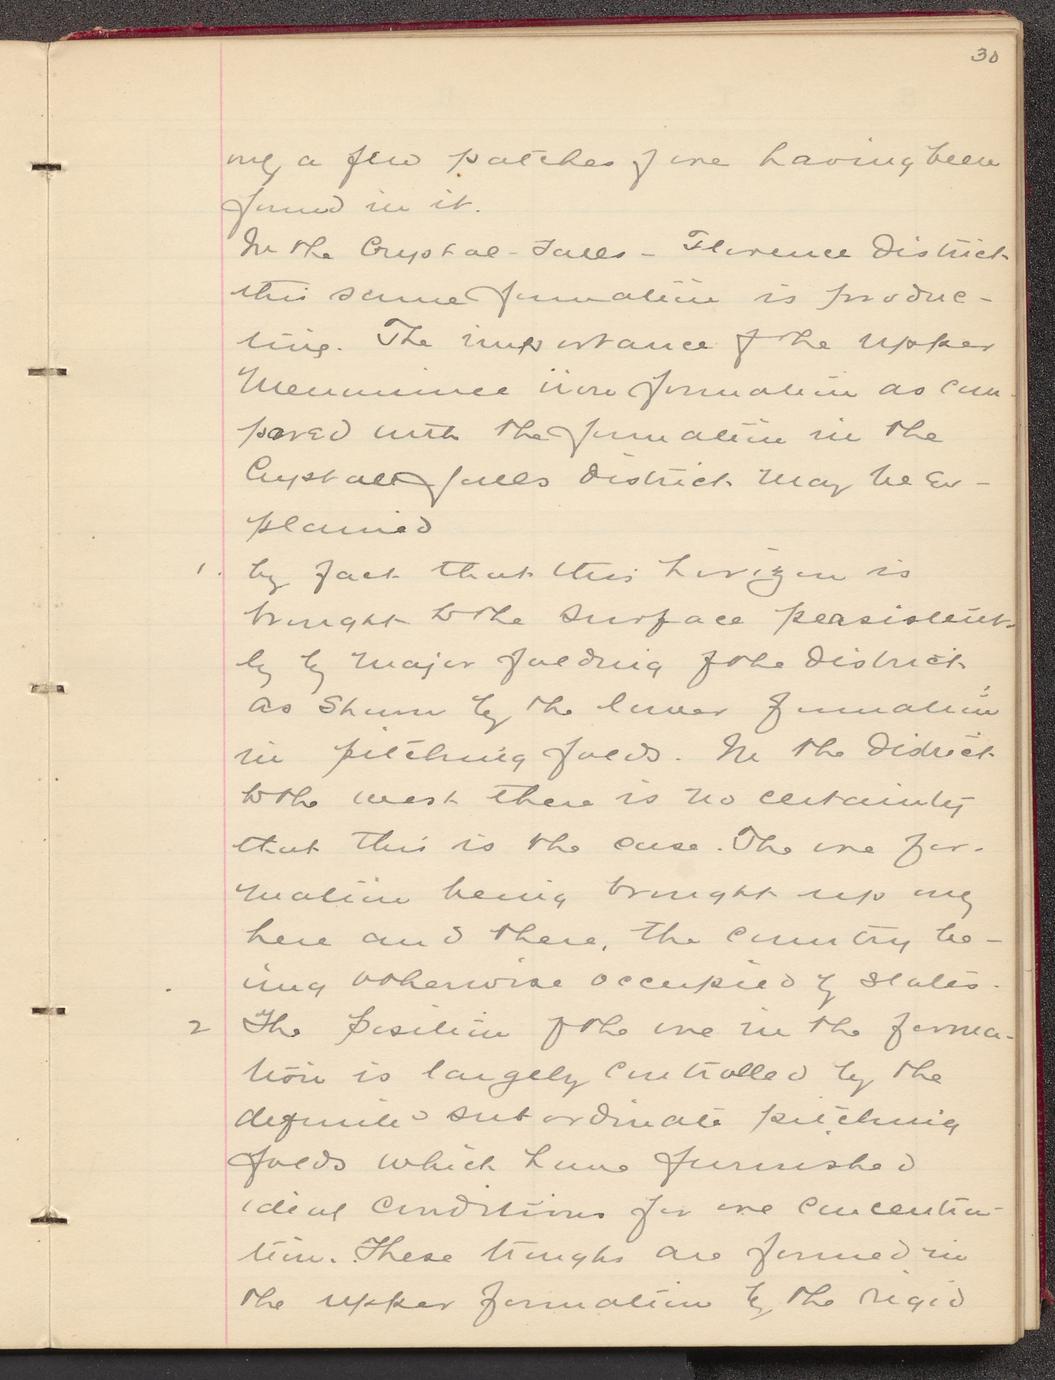 30
only a few patches of ore having been
found in it.
In the Crystal-Falls - Florence District
this same formation is produc-
ting. The importance of the upper
Menominee iron formation as com-
pared with the formation in the
Crystal Falls District may be ex-
plained
1. by fact that this horizon is
brought to the surface persistent-
ly by major folding of the District
as shown by the lower formation
in pitching folds. In the District
to the west there is no certainty
that this is the case. The ore for-
mation being brought up only
here and there, the country be-
ing otherwise occupied by slates.
2 The position of the ore in the forma-
tion is largely controlled by the
definite subordinate pitching
folds which have furnished
ideal conditions for ore concentra-
tion. These troughs are formed in
the upper formation by the rigid